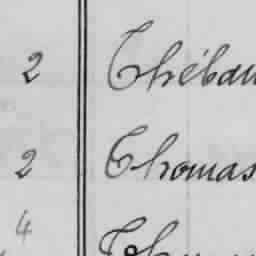 2 Thébau
2 Thomas
4